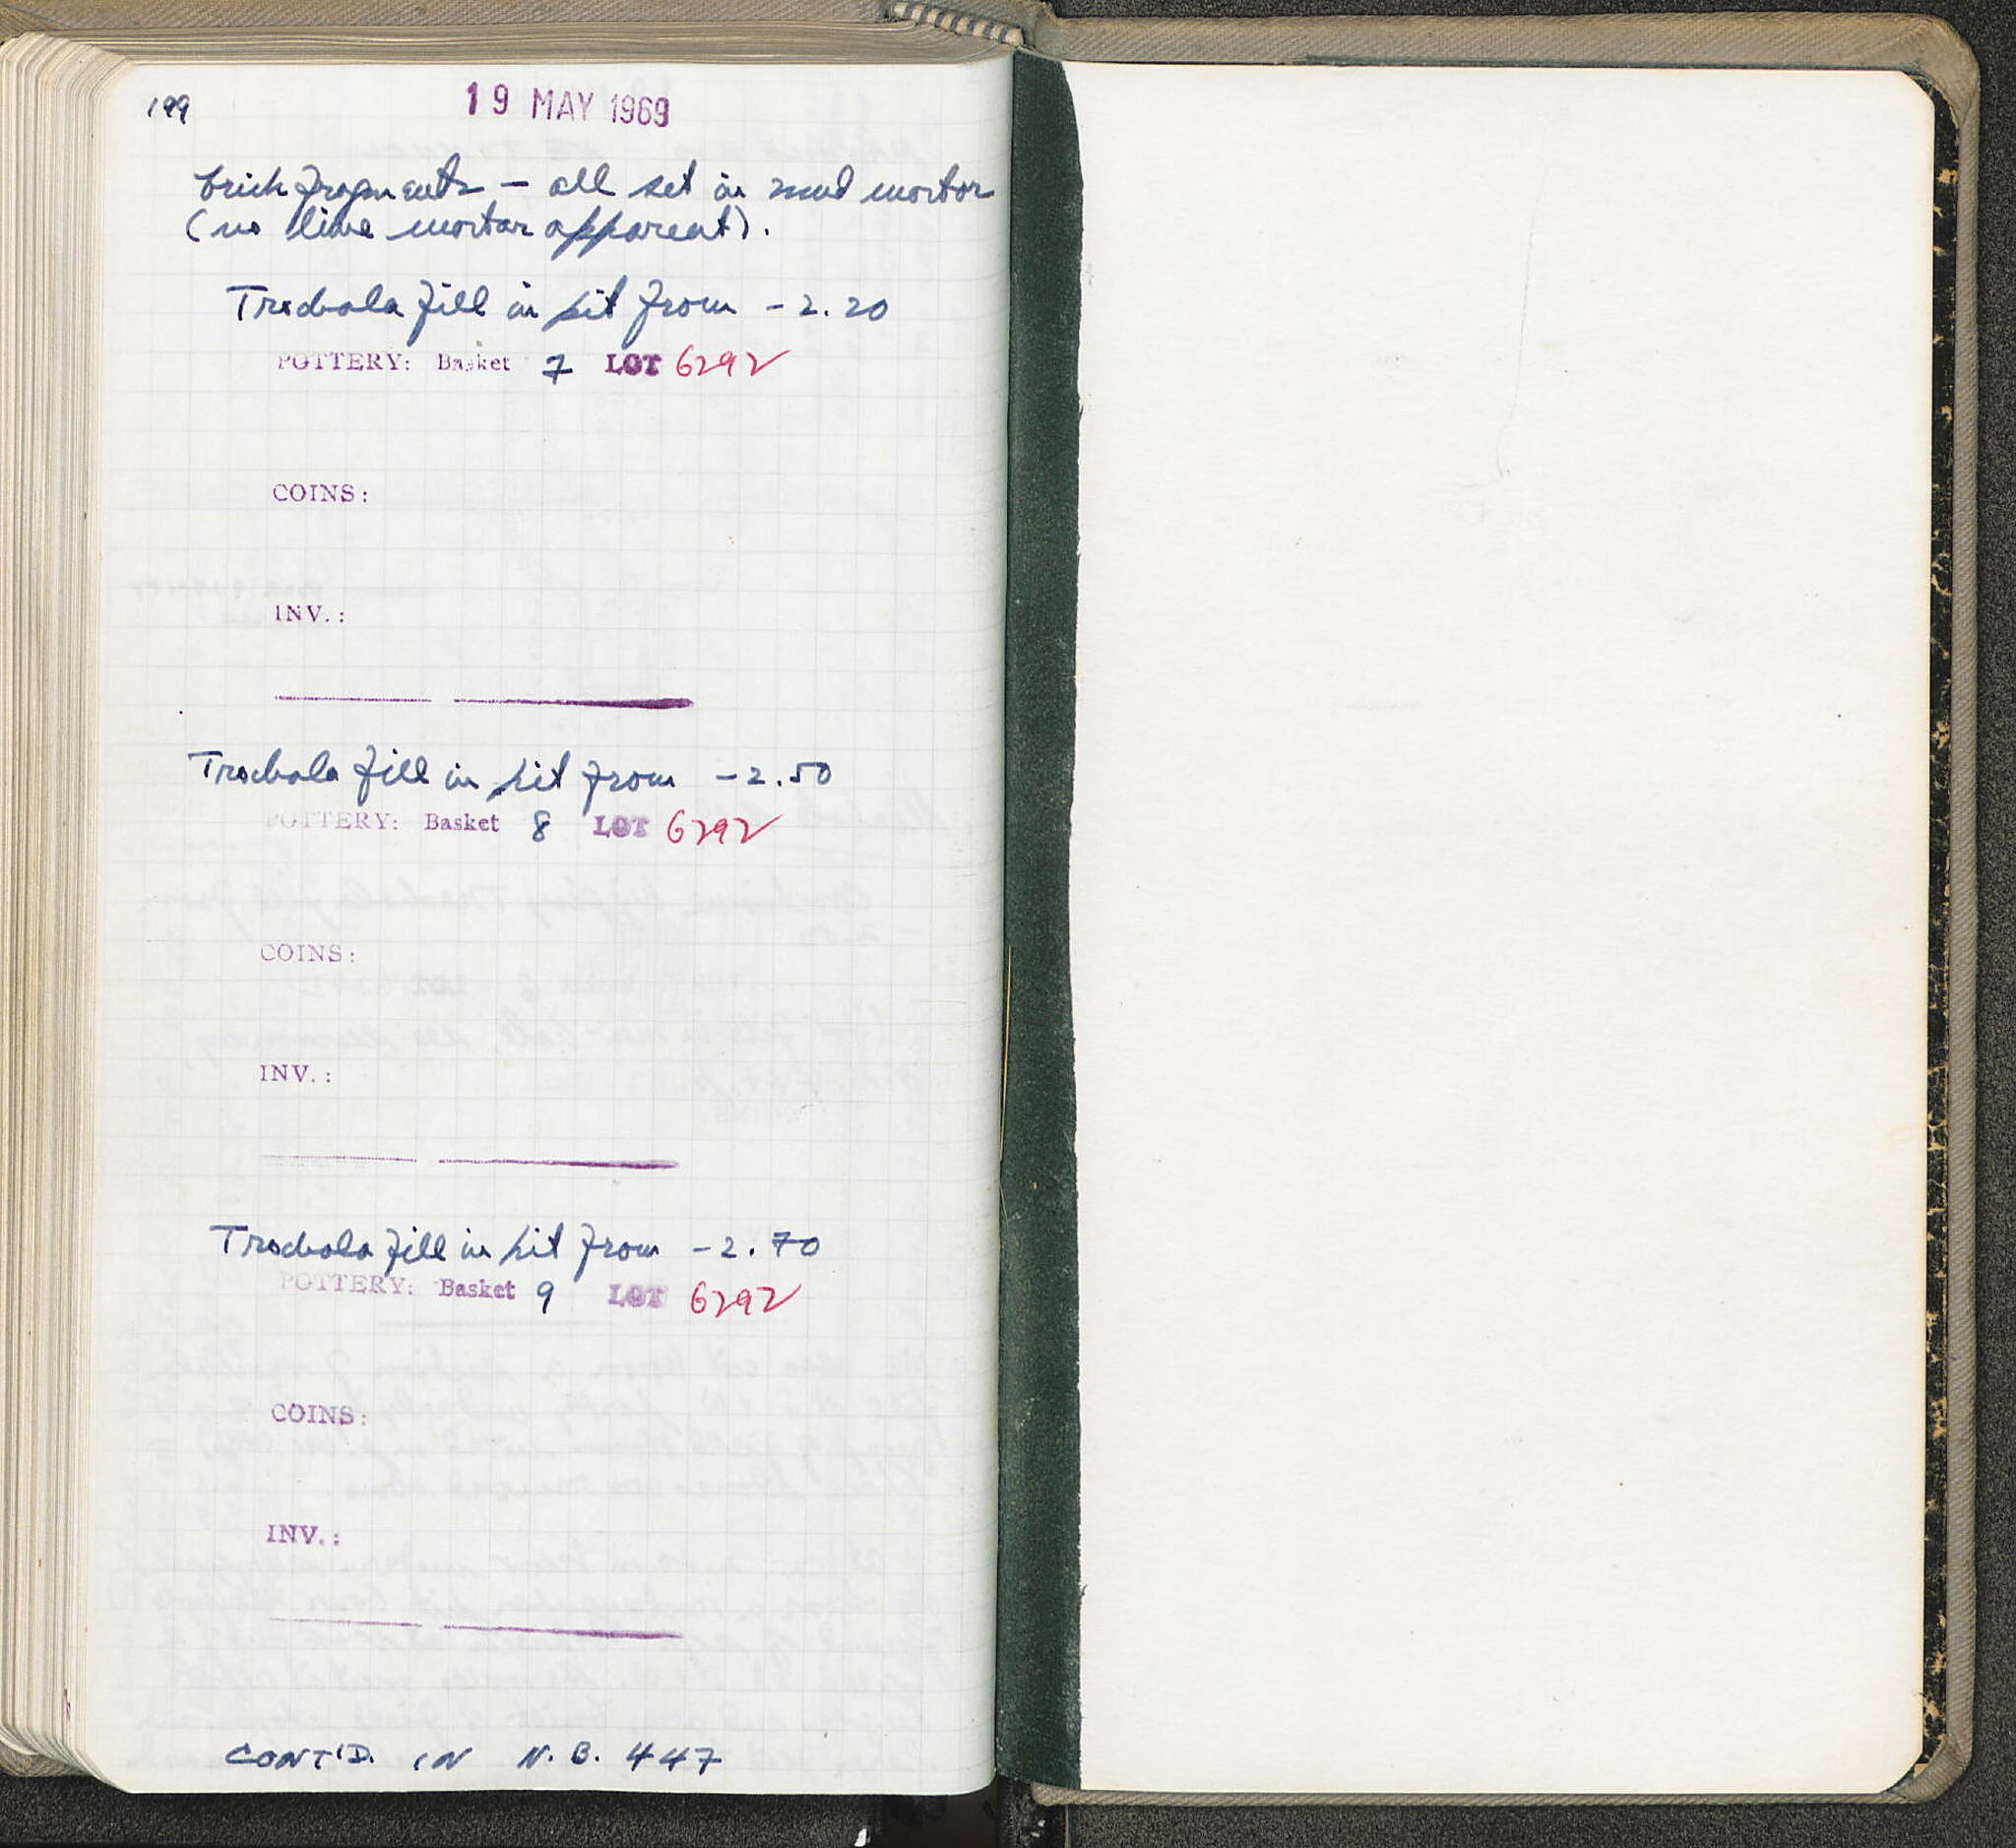 199
19 MAY 1969
brick fragments — all set in mud mortar
(no lime mortar apparent).
Trodola fill in pit from -2.20
POTTERY: Basket 7 LOT 6292
COINS:
INV.:
Trodola fill in pit from -2.50
POTTERY: Basket 8 LOT 6292
COINS:
INV.:
Trodola fill in pit from -2.70
POTTERY: Basket 9 LOT 6292
COINS:
INV.:
CONT'D. IN N.B. 447